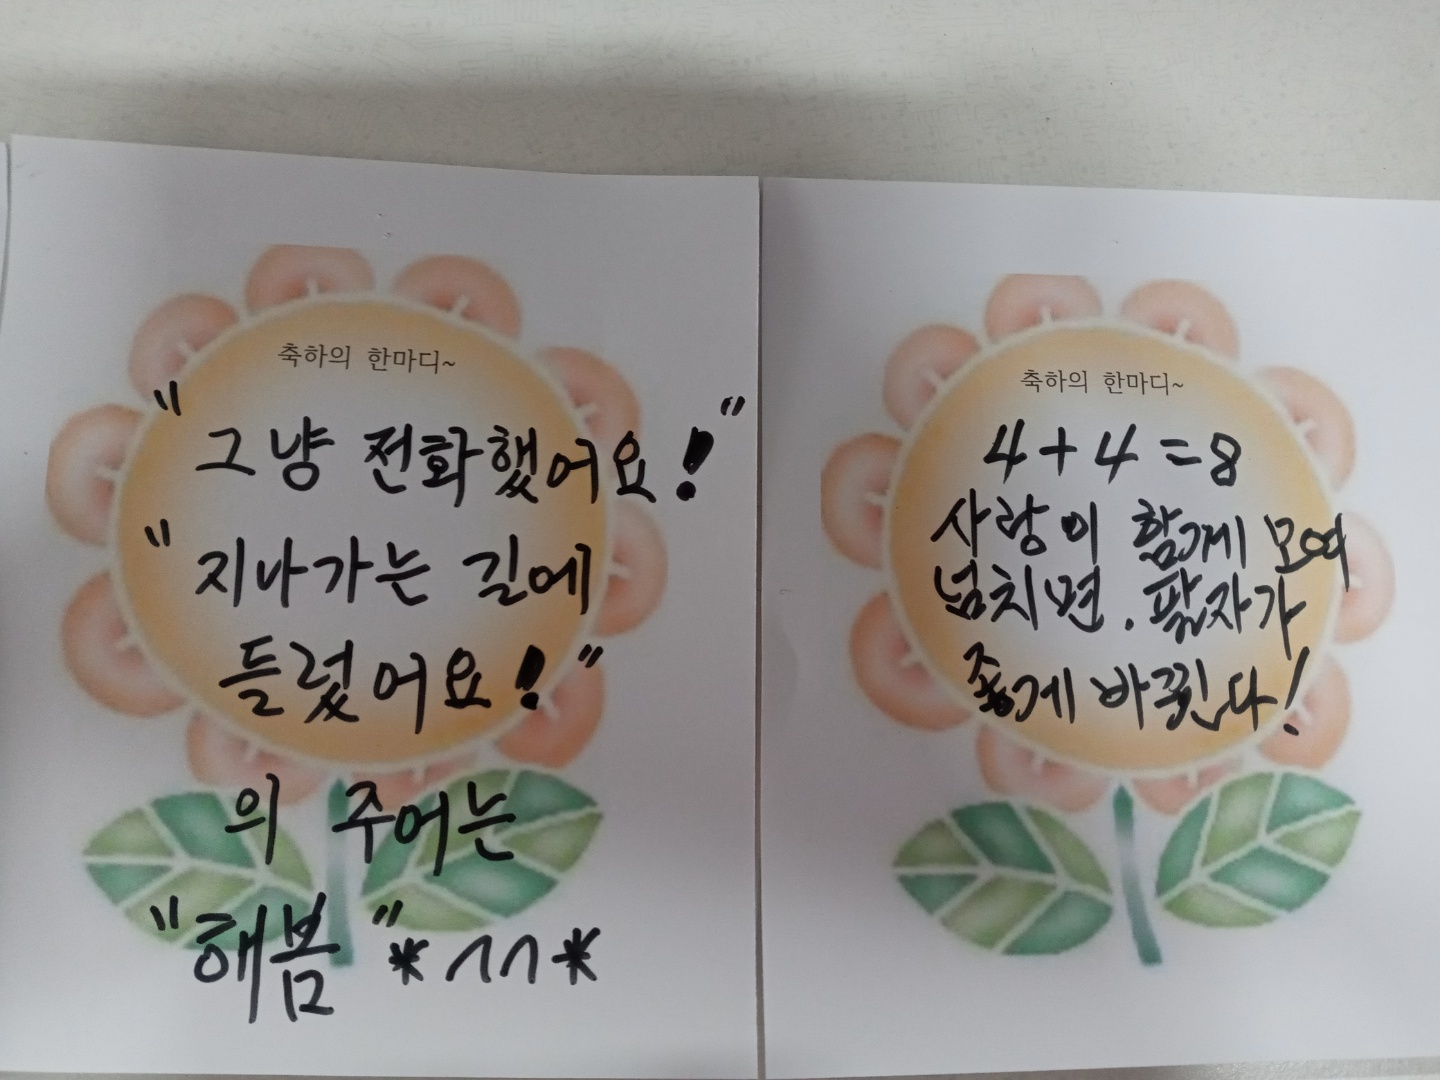 축하의 한마디~
"그냥 전화했어요!"
"지나가는 길에
들렀어요!"
의 주어는
"해봄"*^^*
축하의 한마디~
4+4=8
사랑이 함께 모여
넘치면. 팔자가
좋게 바뀐다!